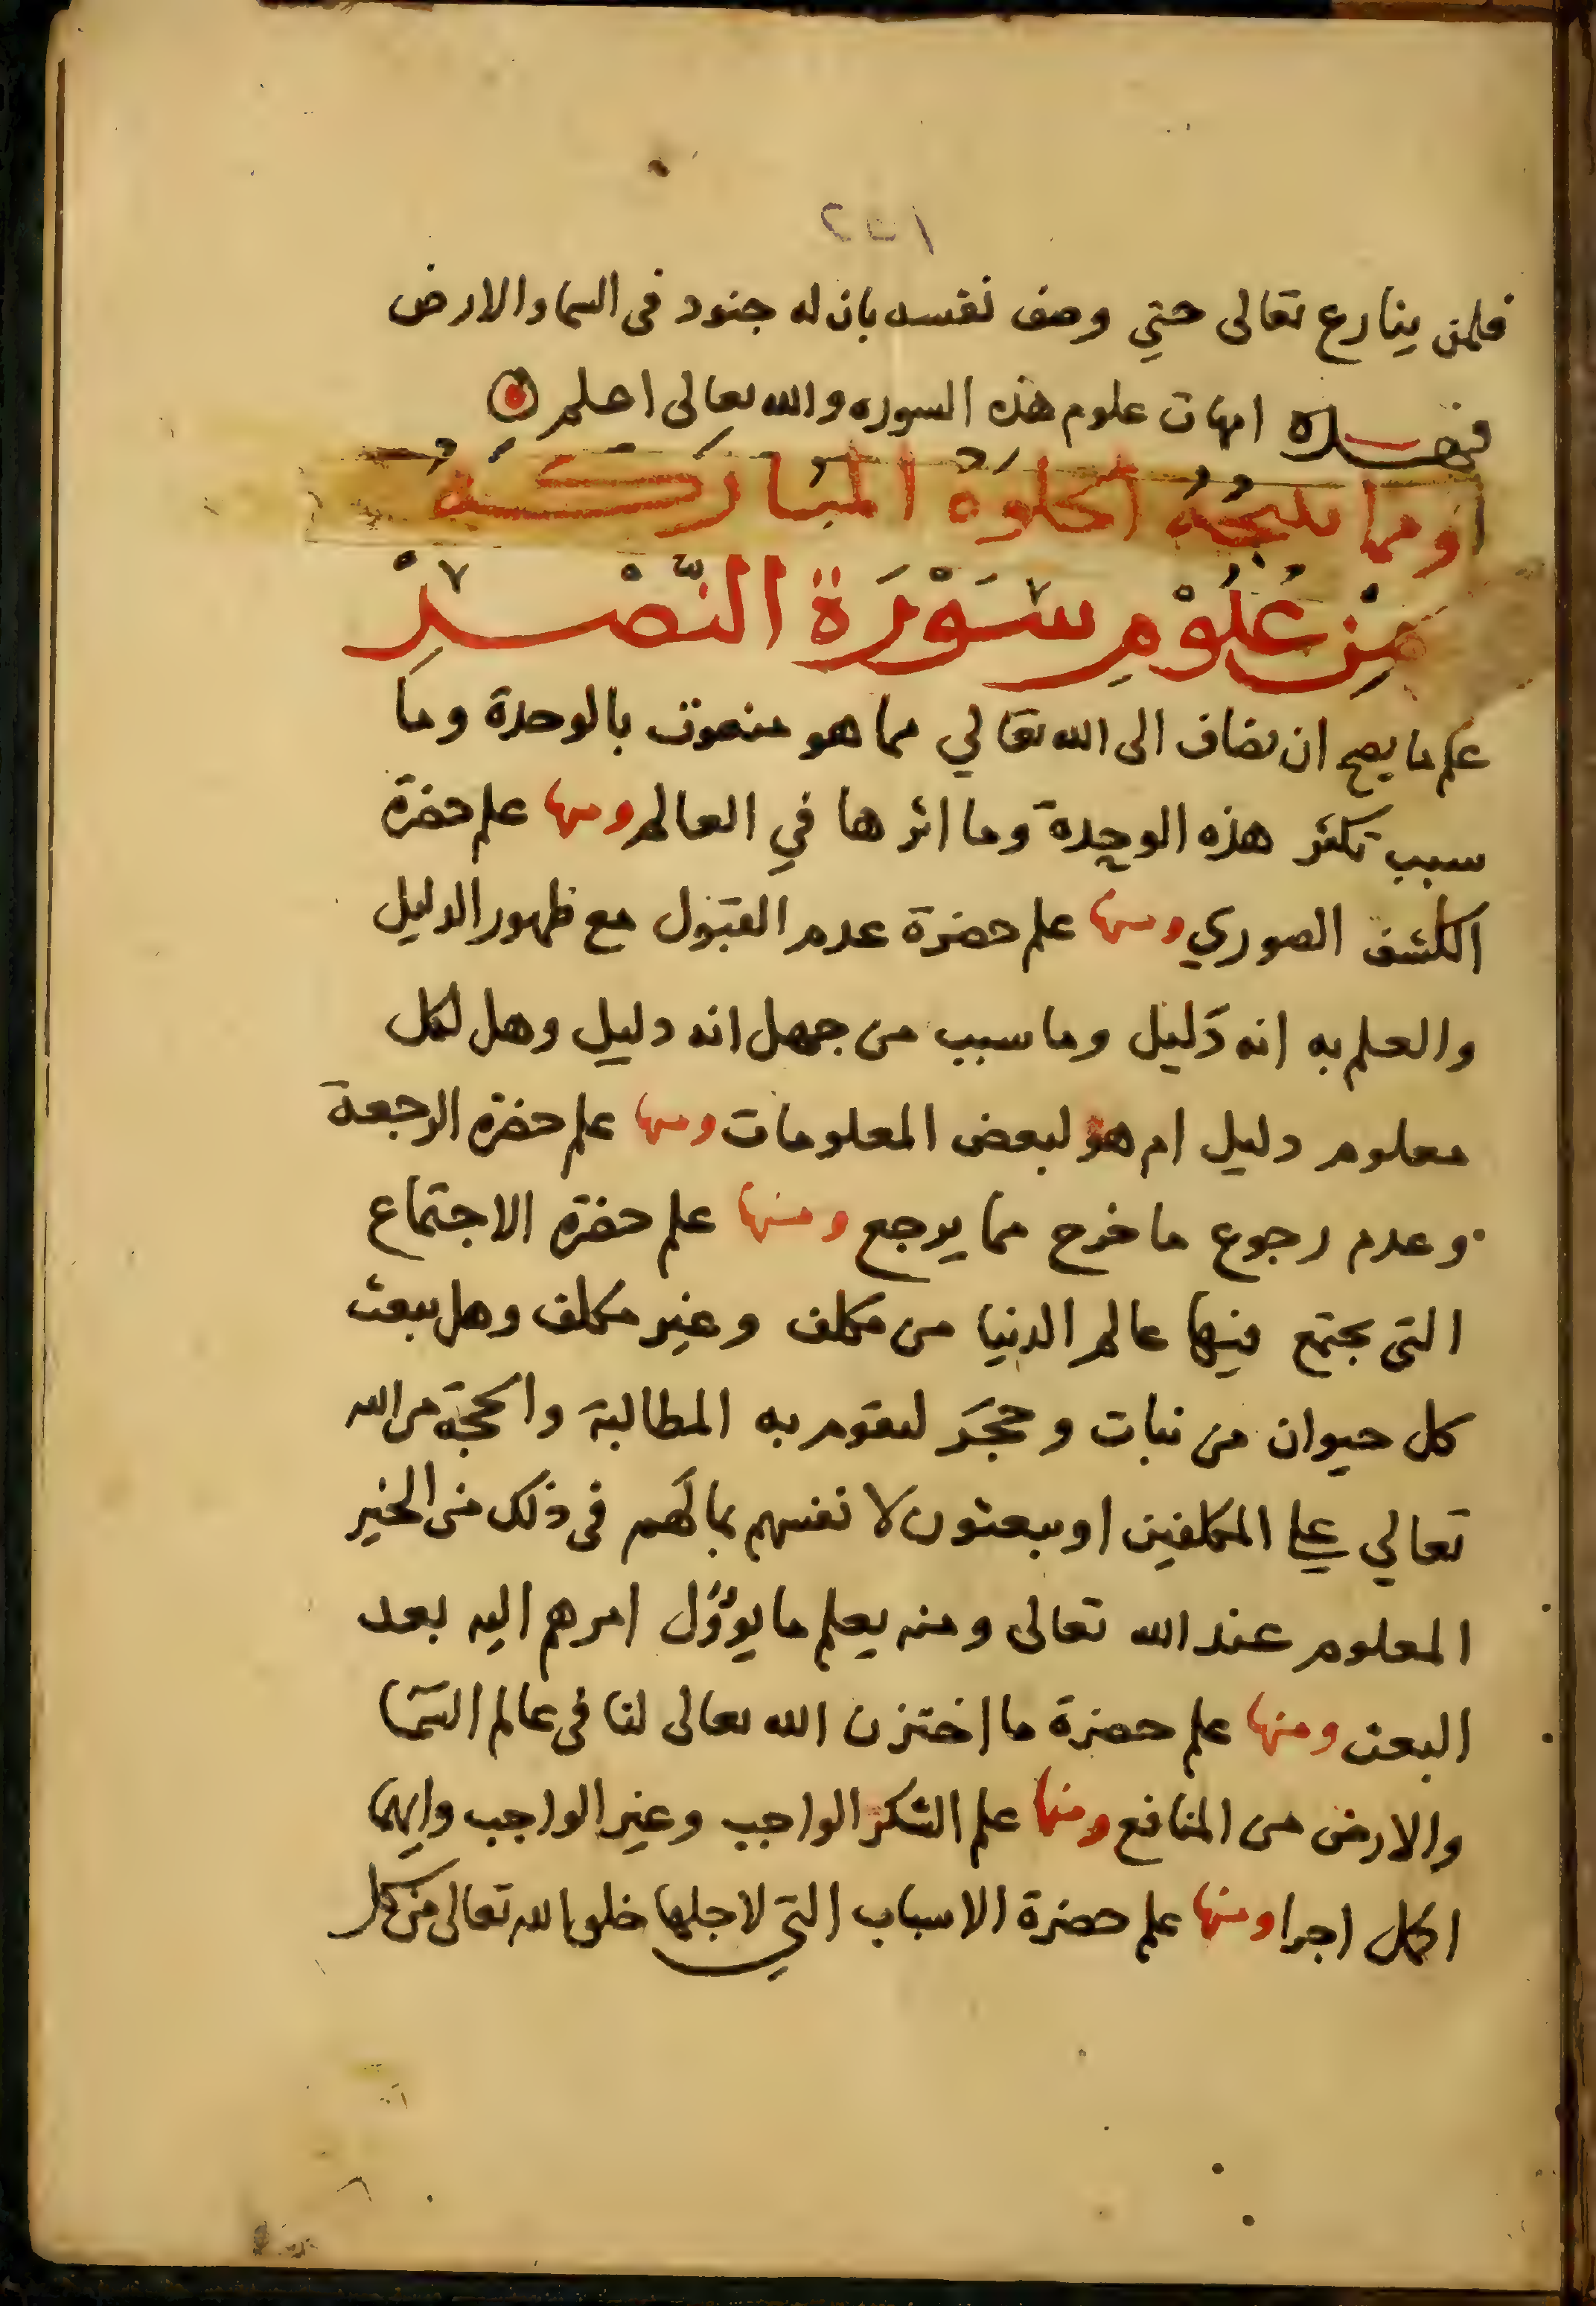 فلمن ينازع تعالى حتي وصف نفسه بان له جنود فى السما والارض
فهـــذه امهات علوم هذه السوره والله تعالى اعلم
ومما تنتجه الخلوة المباركة
من علوم سورة النصر
علم ما يصح ان يضاف الى الله تعالي مما هو منعوت بالوحدة وما
سبب تكثر هذه الوحدة وما اثرها في العالم ومنها علم حضرة
الكشف الصوري ومنها علم حضرة عدم القبول مع ظهور الدليل
والعلم به انه دليل وما سبب من جهل انه دليل وهل لكل
معلوم دليل ام هو لبعض المعلومات ومنها علم حضرة الرجعة
وعدم رجوع ما خرج مما يرجع ومنها علم حضرة الاجتماع
التى يجتمع فيها عالم الدنيا من مكلف وغير مكلف وهل يبعث
كل حيوان من نبات وحجر لتقوم به المطالبة والحجة من الله
تعالي علي المكلفين او يبعثون لانفسهم بما لهم فى ذلك من الخير
المعلوم عند الله تعالى ومنه يعلم ما يوؤل امرهم اليه بعد
البعث ومنها علم حضرة ما اختزن الله تعالى لنا فى عالم السما
والارض من المنافع ومنها علم الشكر الواجب وغير الواجب وايهما
اكمل اجرا ومنها علم حضرة الاسباب التي لاجلها خلق الله تعالى من كل